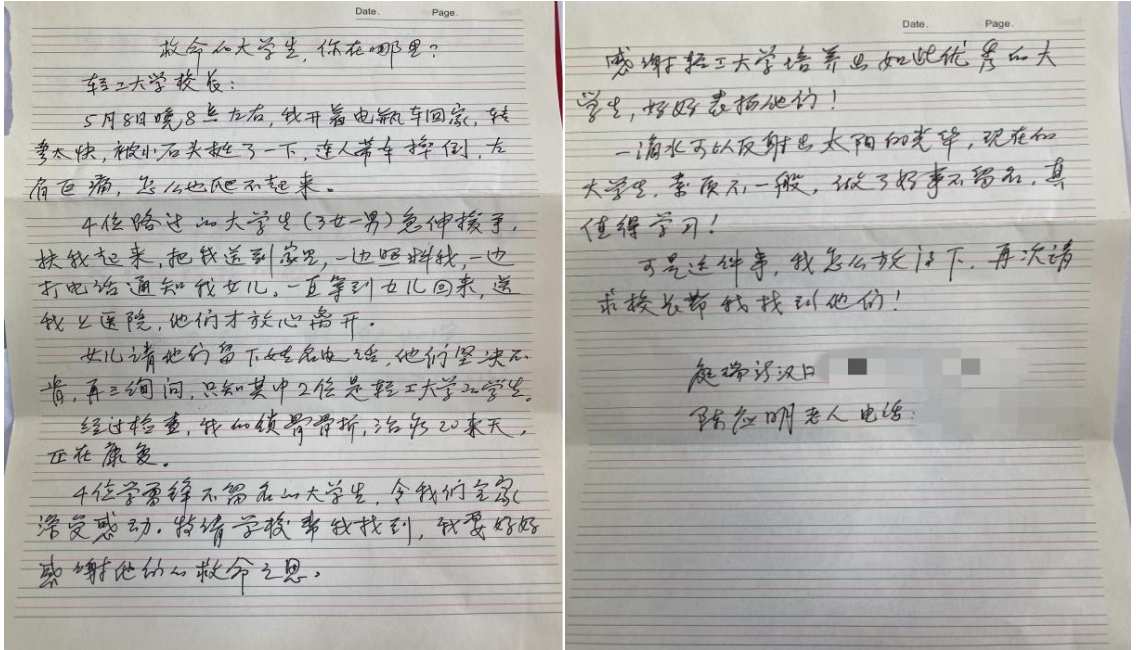 Date. Page.
救命的大学生，你在哪里？
轻工大学校长：
5月8日晚8点左右，我开着电瓶车回家，转
弯太快，被小石头挺了一下，连人带车摔倒，左
肩巨痛，怎么也爬不起来。
4位路过的大学生（3女一男）急伸援手，
扶我起来，把我送到家里，一边照料我，一边
打电话通知我女儿。一直等到女儿回来，送
我上医院，他们才放心离开。
女儿请他们留下姓名电话，他们坚决不
肯，再三询问，只知其中2位是轻工大学的学生。
经过检查，我的锁骨骨折，治疗20来天，
正在康复。
4位学雷锋不留名的大学生，令我们全家
深受感动。特请学校帮我找到，我要好好
感谢他们的救命之恩。
Date. Page.
感谢轻工大学培养出如此优秀的大
学生，好好表扬他们！
一滴水可以反射出太阳的光华，现在的
大学生，素质不一般，做了好事不留名，真
值得学习！
可是这件事，我怎么放得下，再次请
求校长帮我找到他们！
庭瑞新汉口
陈应明老人电话：